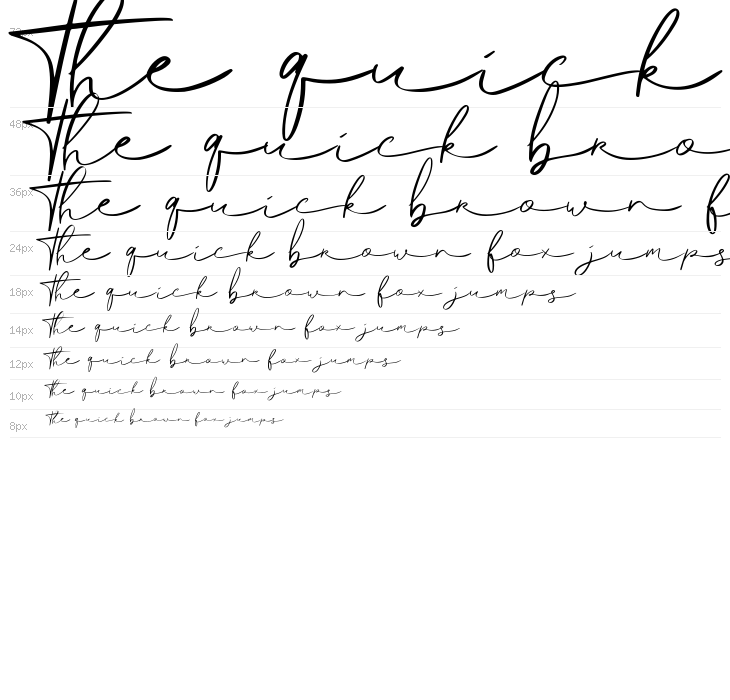 The quick
48px The quick bro
36px The quick brown f
24px The quick brown fox jumps
18px The quick brown fox jumps
14px The quick brown fox jumps
12px The quick brown fox jumps
10px The quick brown fox jumps
8px The quick brown fox jumps